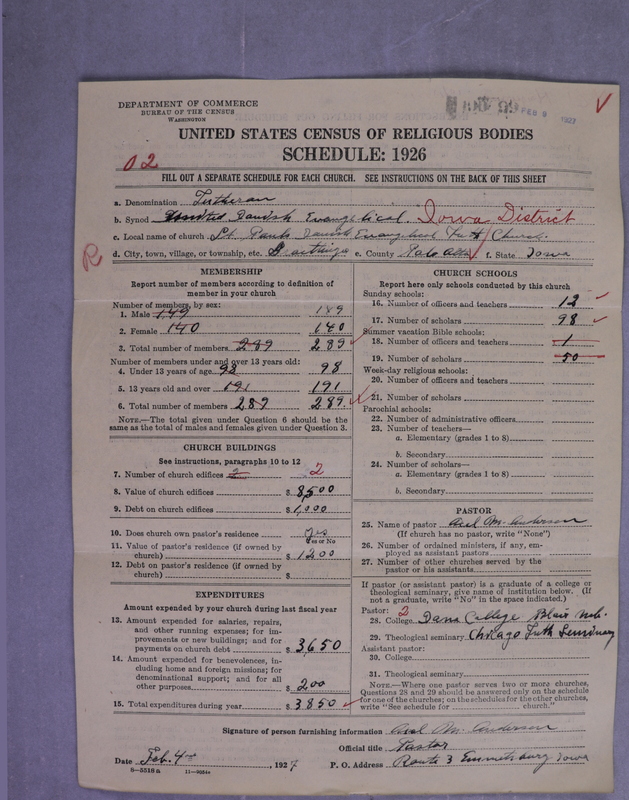 DEPARTMENT OF COMMERCE
BUREAU OF THE CENSUS
WASHINGTON
FEB 9 1927
UNITED STATES CENSUS OF RELIGIOUS BODIES
SCHEDULE: 1926
02
FILL OUT A SEPARATE SCHEDULE FOR EACH CHURCH. SEE INSTRUCTIONS ON THE BACK OF THIS SHEET
a. Denomination Lutheran
b. Synod United Danish Evangelical. Iowa District
c. Local name of church St. Pauls Danish Evangelical Luth Church
R
d. City, town, village, or township, etc. e. County Palo Alto f. State Iowa
MEMBERSHIP
Report number of members according to definition of
member in your church
Number of members, by sex:
1. Male 149 149
2. Female 140 140
3. Total number of members 289 289
Number of members under and over 13 years old:
4. Under 13 years of age 98 98
5. 13 years old and over 191 191
6. Total number of members 289 289
NOTE.—The total given under Question 6 should be the
same as the total of males and females given under Question 3.
CHURCH BUILDINGS
See instructions, paragraphs 10 to 12
7. Number of church edifices 2 2
8. Value of church edifices $ 8,500
9. Debt on church edifices $ 1,000
10. Does church own pastor's residence Yes
Yes or No
11. Value of pastor's residence (if owned by
church) $ 1200
12. Debt on pastor's residence (if owned by
church) $
EXPENDITURES
Amount expended by your church during last fiscal year
13. Amount expended for salaries, repairs,
and other running expenses; for im-
provements or new buildings; and for
payments on church debt $ 3650
14. Amount expended for benevolences, in-
cluding home and foreign missions; for
denominational support; and for all
other purposes $ 200
15. Total expenditures during year $ 3850
CHURCH SCHOOLS
Report here only schools conducted by this church
Sunday schools:
16. Number of officers and teachers 12
17. Number of scholars 98
Summer vacation Bible schools:
18. Number of officers and teachers 1
19. Number of scholars 50
Week-day religious schools:
20. Number of officers and teachers
21. Number of scholars
Parochial schools:
22. Number of administrative officers
23. Number of teachers—
a. Elementary (grades 1 to 8)
b. Secondary
24. Number of scholars—
a. Elementary (grades 1 to 8)
b. Secondary
PASTOR
25. Name of pastor Axel M. Anderson
(If church has no pastor, write "None")
26. Number of ordained ministers, if any, em-
ployed as assistant pastors
27. Number of other churches served by the
pastor or his assistants
If pastor (or assistant pastor) is a graduate of a college or
theological seminary, give name of institution below. (If
not a graduate, write "No" in the space indicated.)
Pastor: 2
28. College Dana College Blair Neb.
29. Theological seminary Chicago Luth Seminary
Assistant pastor:
30. College
31. Theological seminary
NOTE.—Where one pastor serves two or more churches,
Questions 28 and 29 should be answered only on the schedule
for one of the churches; on the schedules for the other churches,
write "See schedule for church."
Signature of person furnishing information Axel M. Anderson
Official title Pastor
Date Feb. 4 1927 P. O. Address Route 3 Emmetsburg Iowa
8-5318a 11-9684a